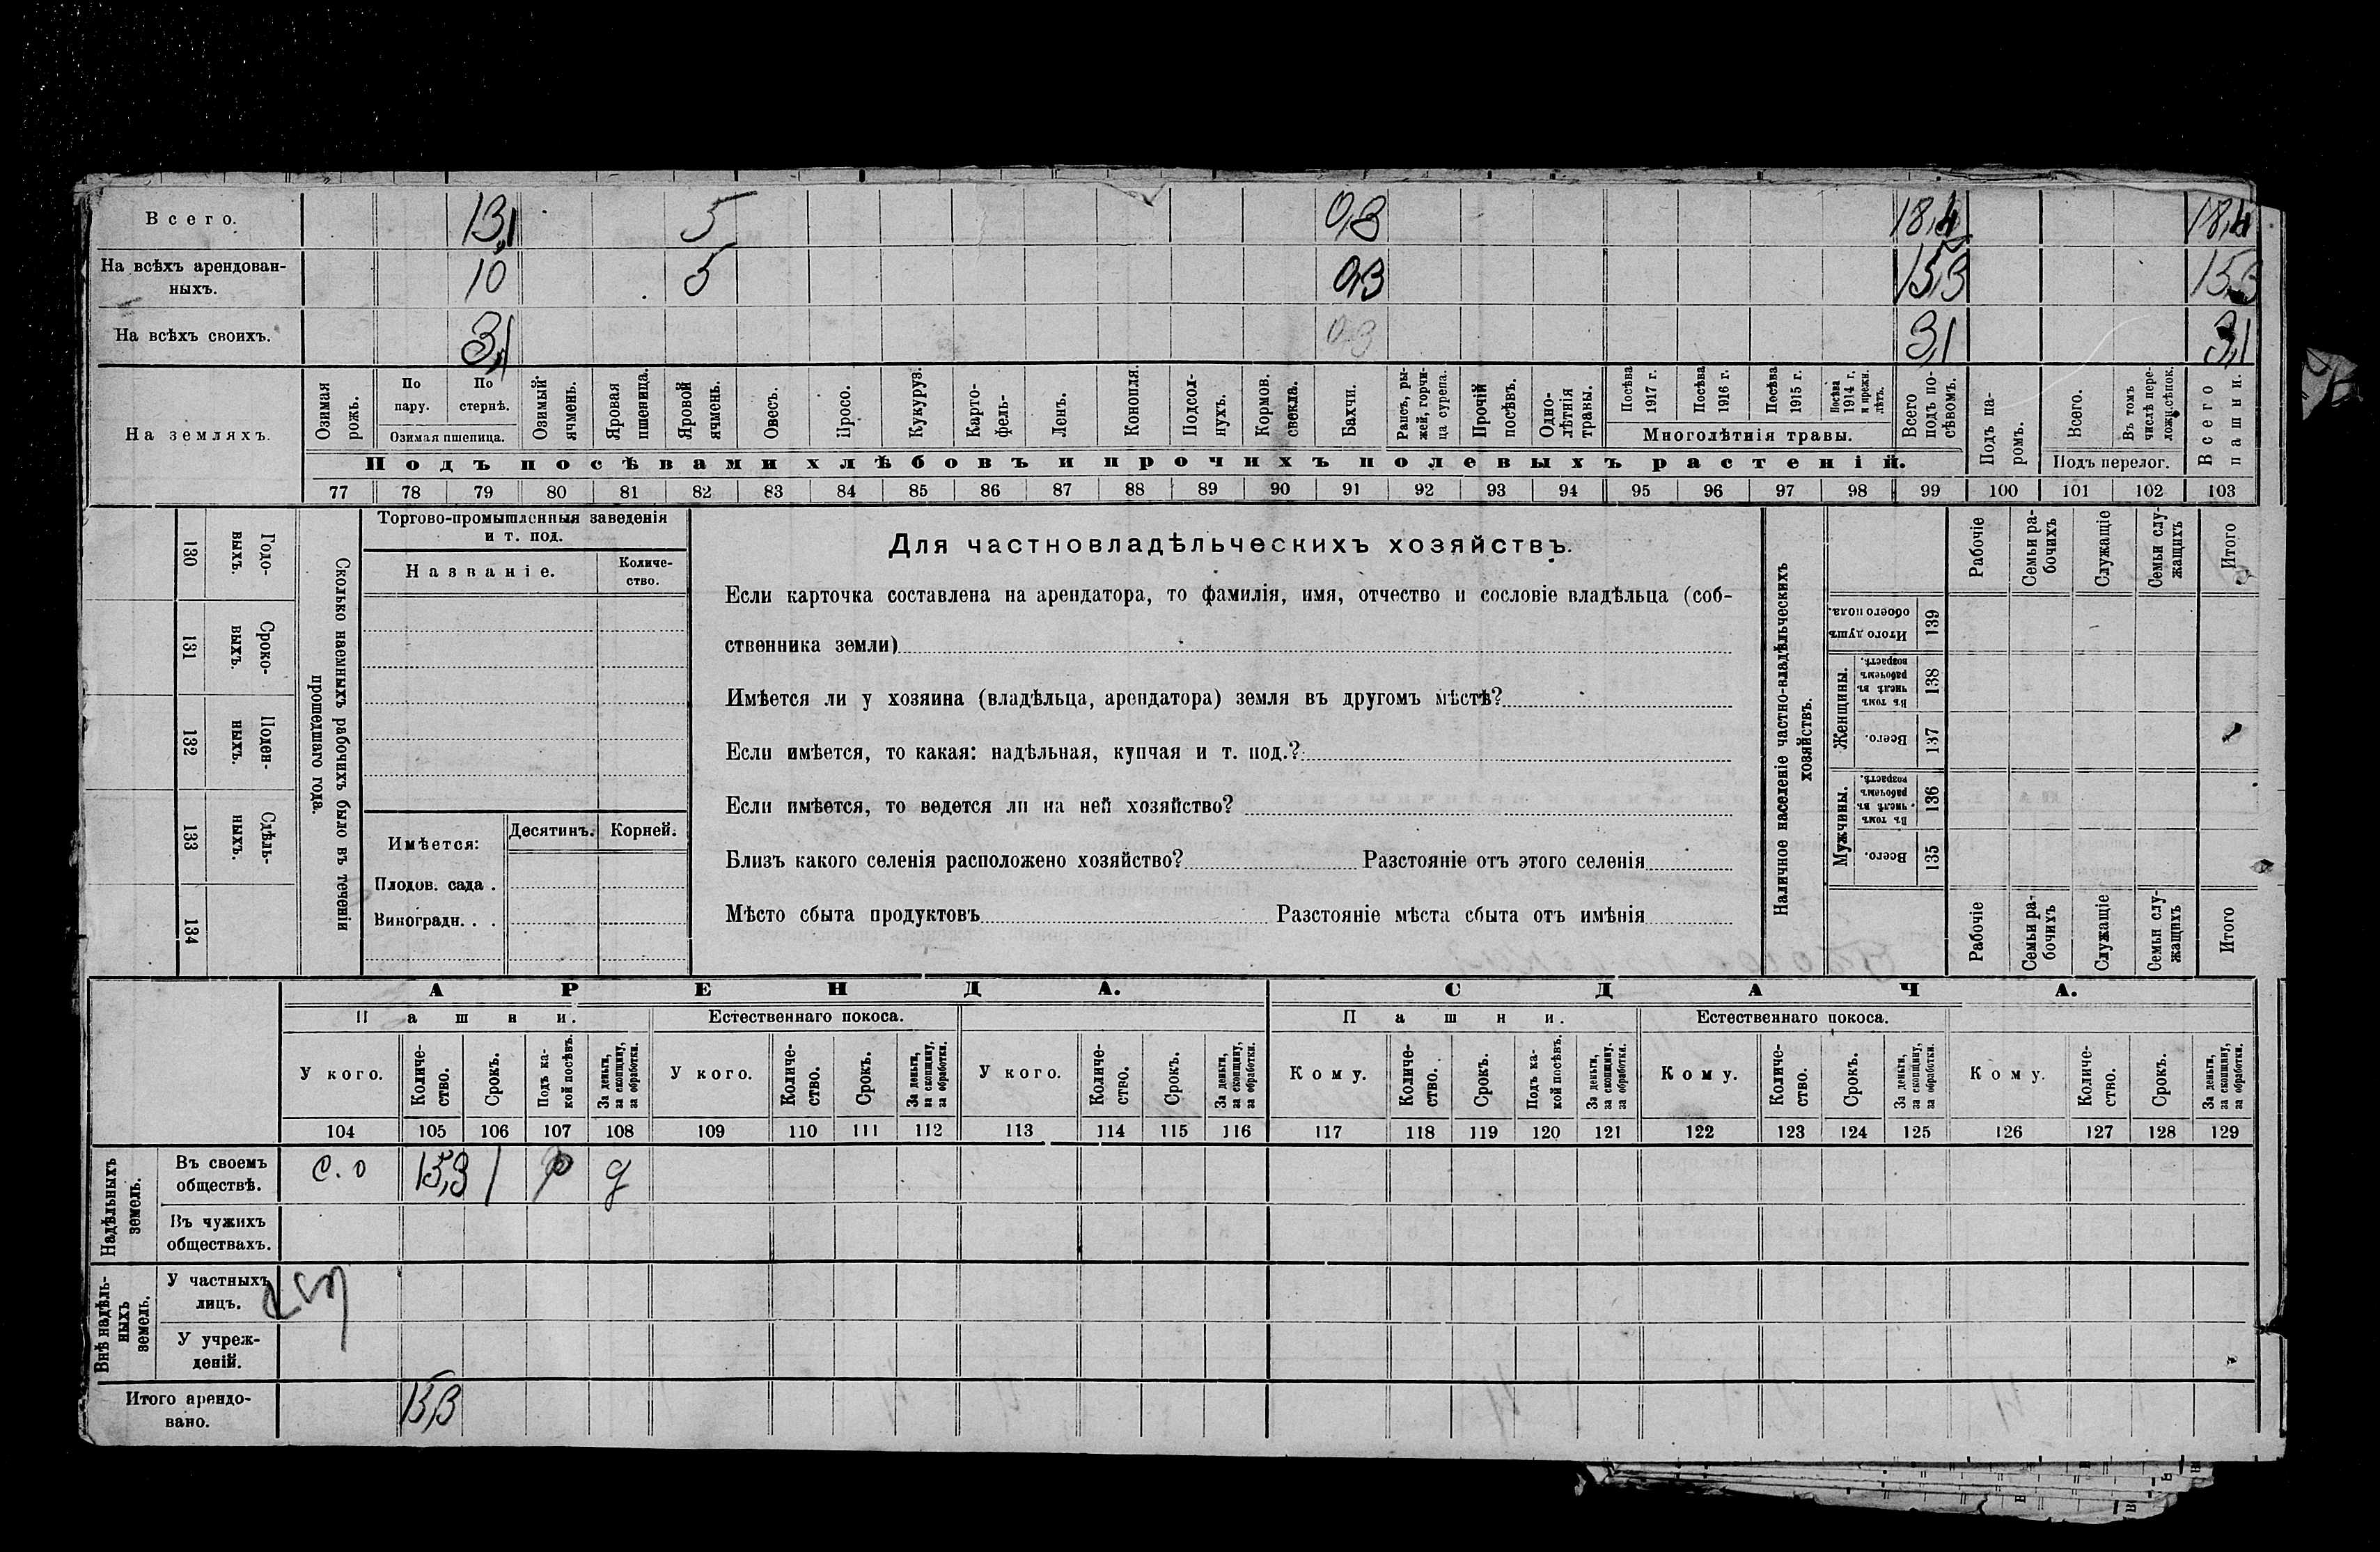 Всего. 13,1 5 0,3 18,4 18,4
На всѣхъ арендован-
ныхъ. 10 5 0,3 15,3 15,3
На всѣхъ своихъ. 3,1 0,3 3,1 3,1
На земляхъ.
Озимая рожь.
По пару.
По стернѣ.
Озимая пшеница.
Озимый ячмень.
Яровая пшеница.
Яровой ячмень.
Овесъ.
Просо.
Кукуруз.
Карто-
фель.
Ленъ.
Конопля.
Подсол-
нухъ.
Кормов. свекла.
Бахчи.
Рапсъ, ры-
жей, горчи-
ца сурепа.
Прочій посѣвъ.
Одно-
лѣтнія травы.
Посѣва 1917 г.
Посѣва 1916 г.
Посѣва 1915 г.
Посѣва 1914 г. и прежн. лѣтъ.
Многолѣтнія травы.
Всего подъ по-
сѣвомъ.
Подъ посѣвами хлѣбовъ и прочихъ полевыхъ растеній.
Подъ па-
ромъ.
Всего.
Въ томъ числѣ пере-
ложн. сѣнок.
Подъ перелог.
Всего пашни.
77 78 79 80 81 82 83 84 85 86 87 88 89 90 91 92 93 94 95 96 97 98 99 100 101 102 103
130 Годо-
выхъ.
131 Сроко-
выхъ.
132 Поден-
ныхъ.
133 Сдѣль-
ныхъ.
134
Сколько наемныхъ рабочихъ было въ теченіи
прошедшаго года.
Торгово-промышленныя заведенія
и т. под.
Названіе.
Количе-
ство.
Имѣется:
Десятинъ.
Корней.
Плодов. сада .
Виноградн. . .
Для частновладѣльческихъ хозяйствъ.
Если карточка составлена на арендатора, то фамилія, имя, отчество и сословіе владѣльца (соб-
ственника земли)
Имѣется ли у хозяина (владѣльца, арендатора) земля въ другомъ мѣстѣ?
Если имѣется, то какая: надѣльная, купчая и т. под.?
Если имѣется, то ведется ли на ней хозяйство?
Близъ какого селенія расположено хозяйство? Разстояніе отъ этого селенія
Мѣсто сбыта продуктовъ Разстояніе мѣста сбыта отъ имѣнія
Наличное населеніе частно-владѣльческихъ
хозяйствъ.
Рабочіе
Семьи ра-
бочихъ
Служащіе
Семьи слу-
жащихъ
Итого
Итого душъ обоего пола. 139
Женщины.
Въ томъ числѣ въ рабочемъ возрастѣ. 138
Всего. 137
Мужчины.
Въ томъ числѣ въ рабочемъ возрастѣ. 136
Всего. 135
Рабочіе
Семьи ра-
бочихъ
Служащіе
Семьи слу-
жащихъ
Итого
АРЕНДА. СДАЧА.
Пашни. Естественнаго покоса. Пашни. Естественнаго покоса.
У кого.
Количе-
ство.
Срокъ.
Подъ ка-
кой посѣвъ.
За деньги,
за скопщину,
за обработки.
У кого.
Количе-
ство.
Срокъ.
За деньги,
за скопщину,
за обработки.
У кого.
Количе-
ство.
Срокъ.
За деньги,
за скопщину,
за обработки.
Кому.
Количе-
ство.
Срокъ.
Подъ ка-
кой посѣвъ.
За деньги,
за скопщину,
за обработки.
Кому.
Количе-
ство.
Срокъ.
За деньги,
за скопщину,
за обработки.
Кому.
Количе-
ство.
Срокъ.
За деньги,
за скопщину,
за обработки.
104 105 106 107 108 109 110 111 112 113 114 115 116 117 118 119 120 121 122 123 124 125 126 127 128 129
Надѣльныхъ
земель.
Въ своемъ
обществѣ.
с. о 15,3 1 р д
Въ чужихъ
обществахъ.
Внѣ надѣль-
ныхъ
земель.
У частныхъ
лицъ.
У учреж-
деній.
Итого арендо-
вано. 15,3